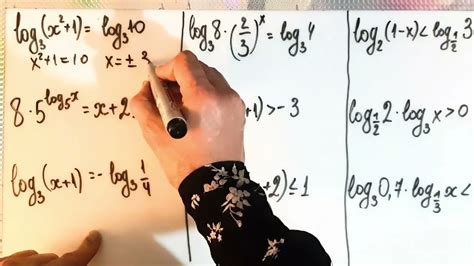 log₃(x²+1) = log₃10
x²+1=10 x=±3
8·5^(log₅x) = x+2.
log₃(x+1) = -log₃ 1/4
log₃8·(2/3)^x = log₃4
+1)>-3
+2)≤1
log₂(1-x)<log_(1/2)3
log_(1/2)2·log₃x>0
log₃0,7·log_(1/3)x<